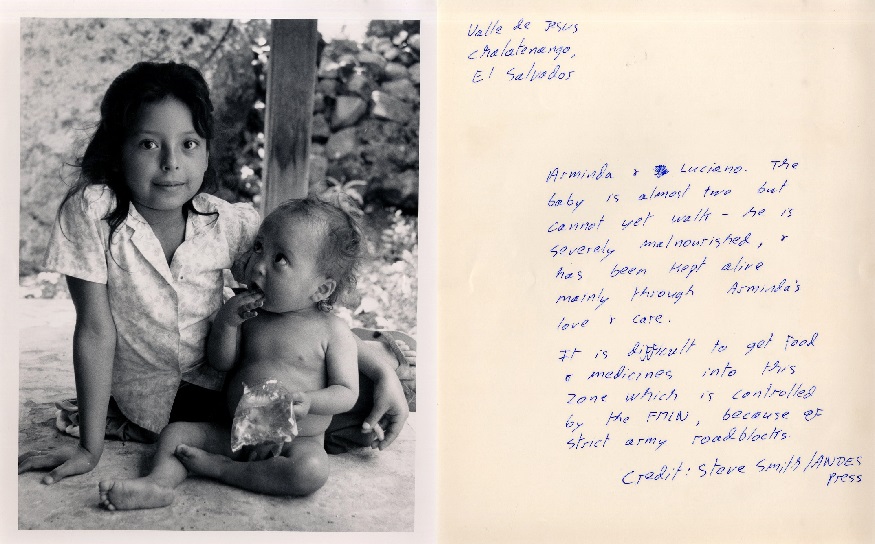 Valle de Jesus
Chalatenango,
El Salvador
Arminda & Luciano. The
baby is almost two but
cannot yet walk - he is
severely malnourished, &
has been kept alive
mainly through Arminda's
love & care.
It is difficult to get food
& medicines into this
zone which is controlled
by the FMLN, because of
strict army roadblocks.
Credit: Steve Smith/ANDES
Press